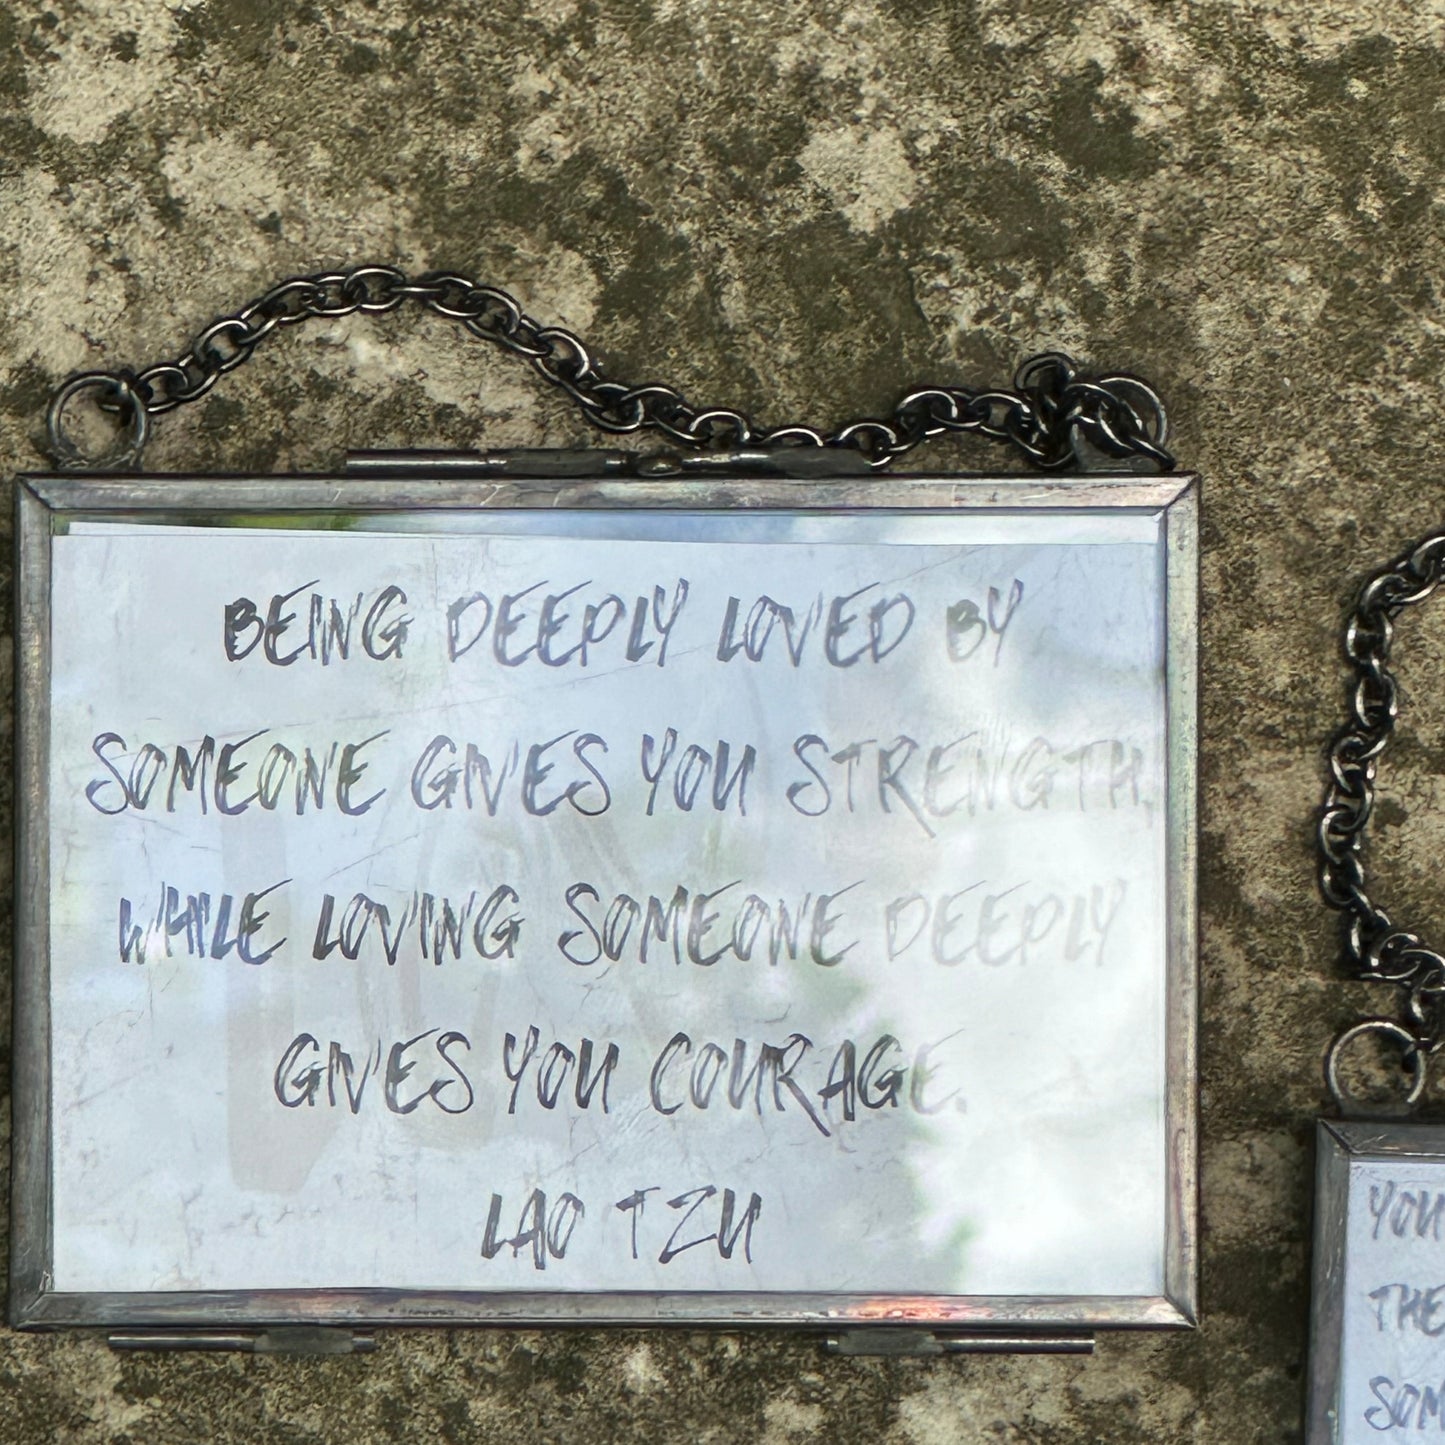 BEING DEEPLY LOVED BY
SOMEONE GIVES YOU STRENGTH,
WHILE LOVING SOMEONE DEEPLY
GIVES YOU COURAGE.
LAO TZU
YOU
THE
SOM